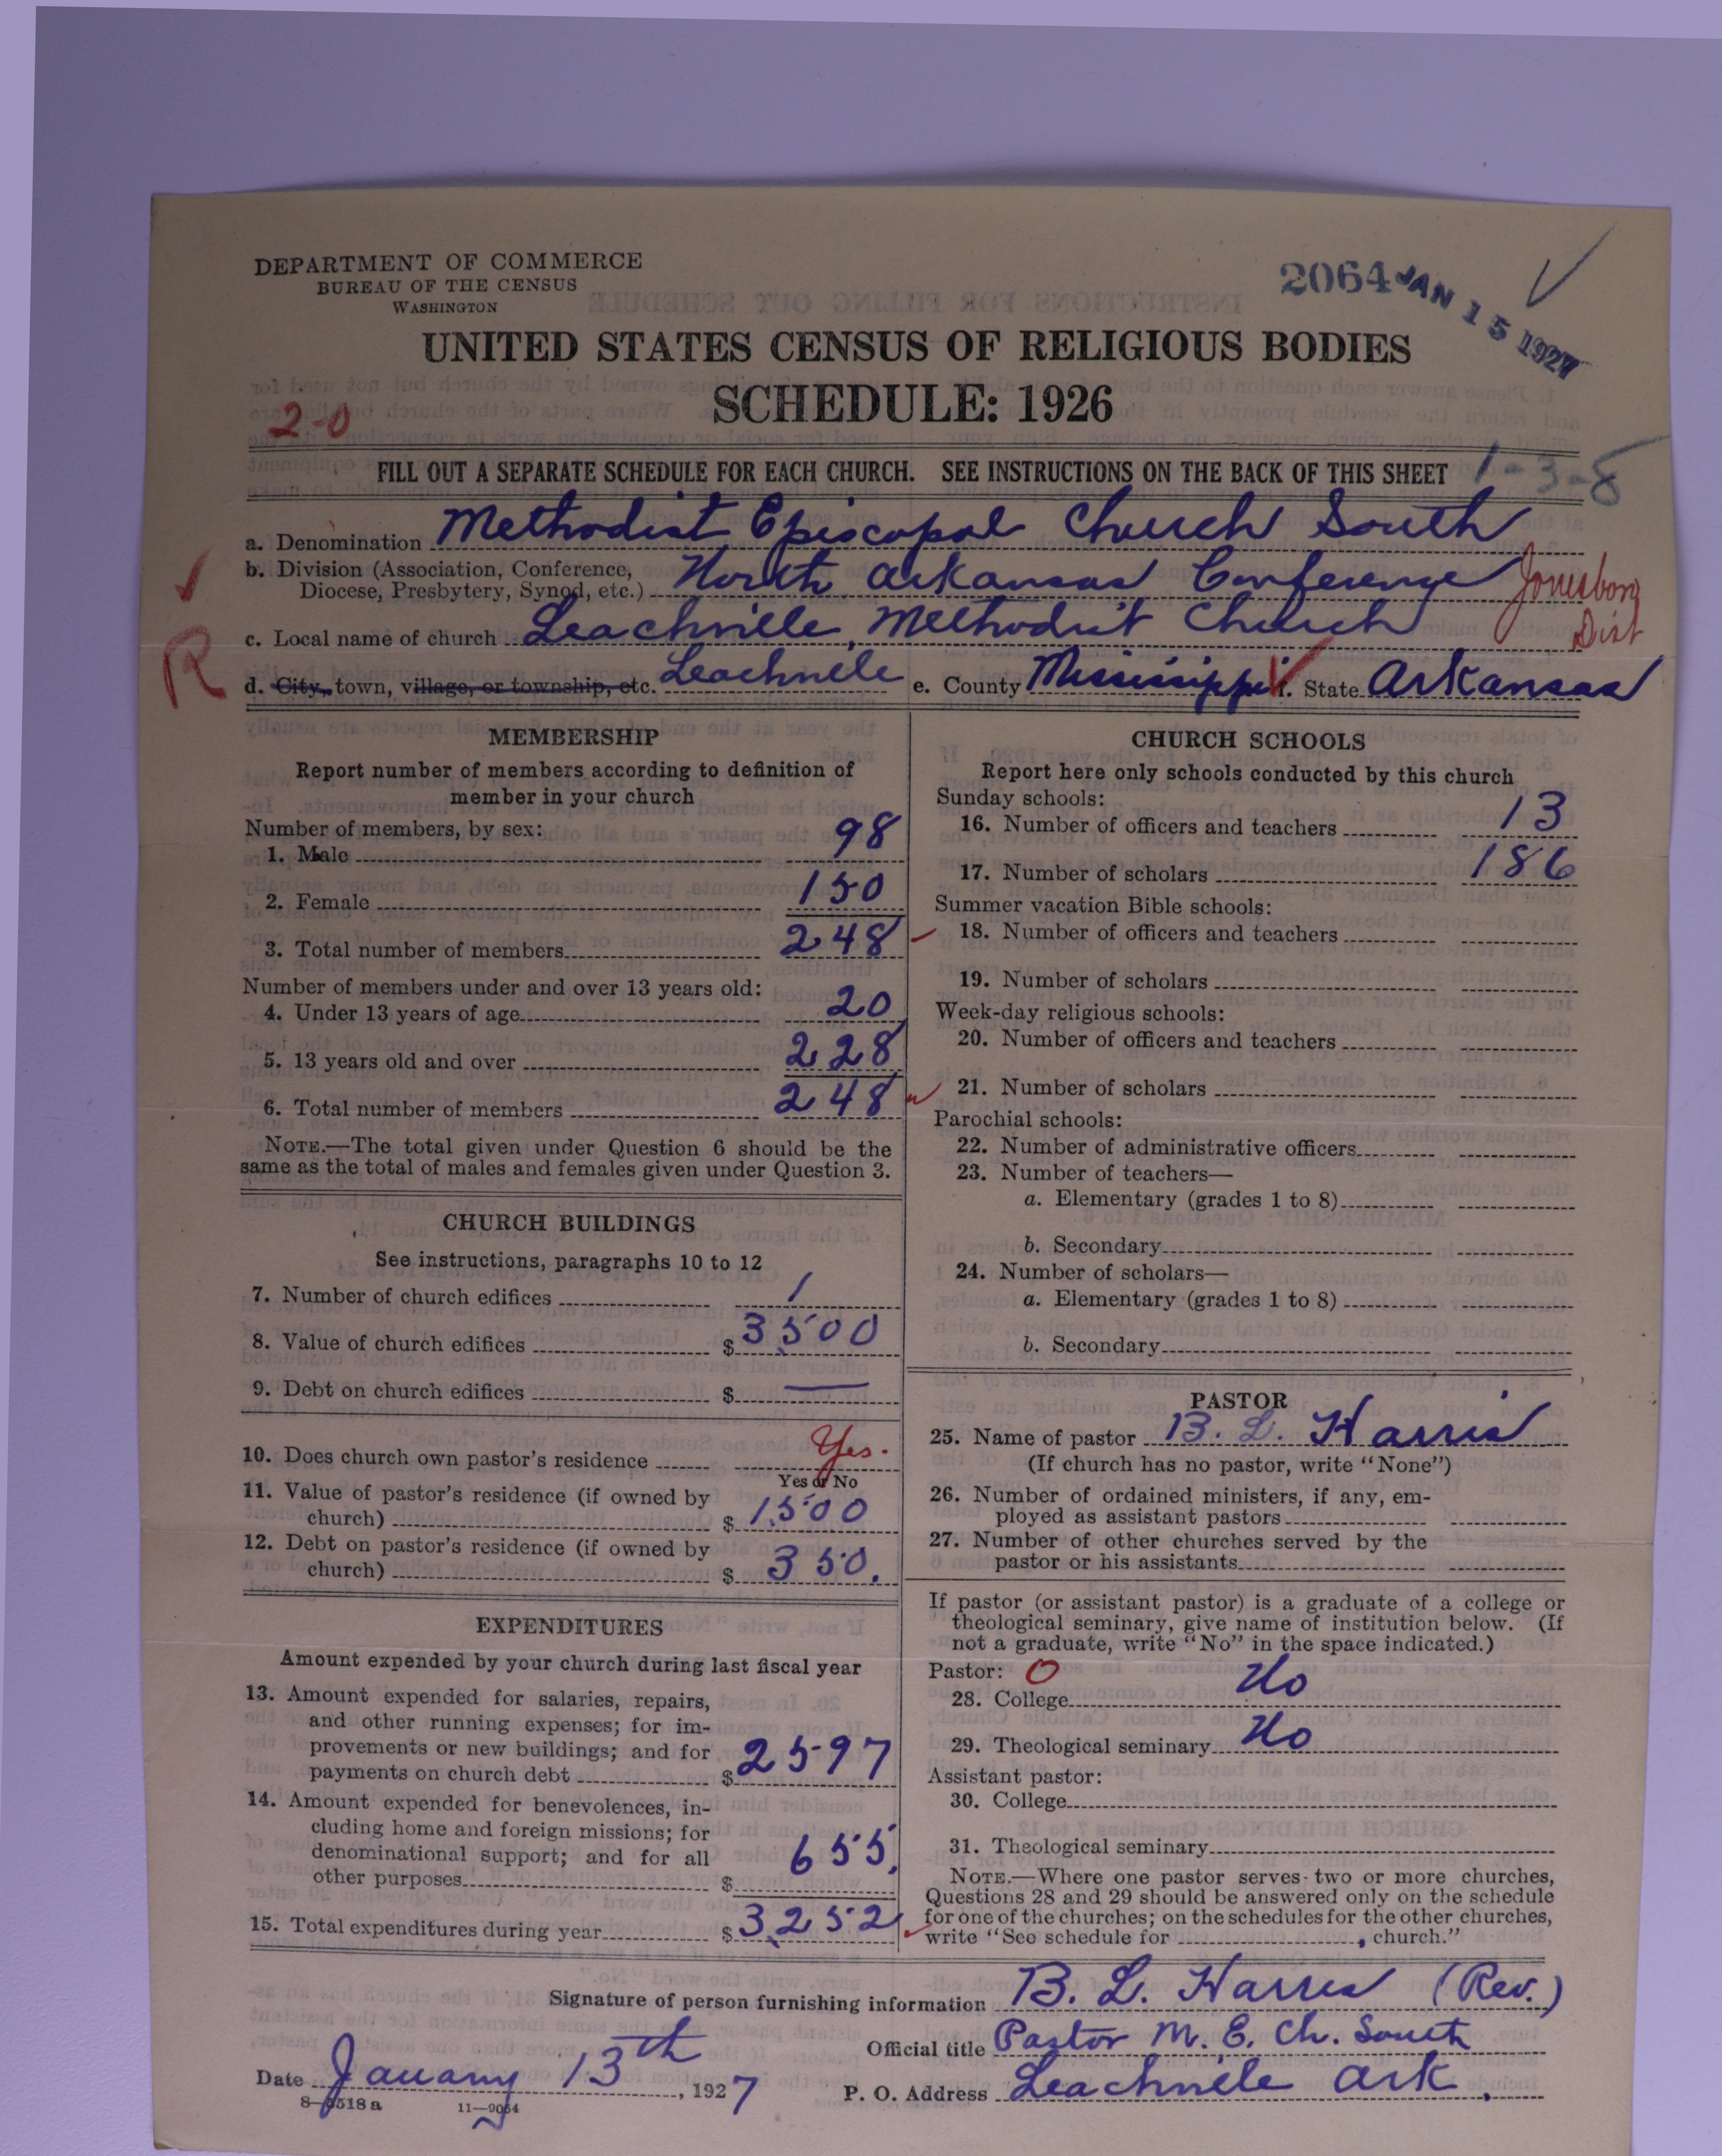 DEPARTMENT OF COMMERCE
BUREAU OF THE CENSUS
WASHINGTON
2064 JAN 15 1927
UNITED STATES CENSUS OF RELIGIOUS BODIES
SCHEDULE: 1926
2-0
FILL OUT A SEPARATE SCHEDULE FOR EACH CHURCH. SEE INSTRUCTIONS ON THE BACK OF THIS SHEET 1-3-8
a. Denomination Methodist Episcopal Church South
b. Division (Association, Conference,
Diocese, Presbytery, Synod, etc.) North Arkansas Conference Jonesboro
Dist
c. Local name of church Leachville Methodist Church
R
d. City, town, village, or township, etc. Leachville e. County Mississippi f. State Arkansas
MEMBERSHIP
Report number of members according to definition of
member in your church
Number of members, by sex:
1. Male 98
2. Female 150
3. Total number of members 248
Number of members under and over 13 years old:
4. Under 13 years of age 20
5. 13 years old and over 228
6. Total number of members 248
NOTE.—The total given under Question 6 should be the
same as the total of males and females given under Question 3.
CHURCH BUILDINGS
See instructions, paragraphs 10 to 12
7. Number of church edifices 1
8. Value of church edifices $ 3500
9. Debt on church edifices $ —
10. Does church own pastor's residence Yes.
Yes or No
11. Value of pastor's residence (if owned by
church) $ 1500
12. Debt on pastor's residence (if owned by
church) $ 350.
EXPENDITURES
Amount expended by your church during last fiscal year
13. Amount expended for salaries, repairs,
and other running expenses; for im-
provements or new buildings; and for
payments on church debt $ 2597
14. Amount expended for benevolences, in-
cluding home and foreign missions; for
denominational support; and for all
other purposes $ 655.
15. Total expenditures during year $ 3252
CHURCH SCHOOLS
Report here only schools conducted by this church
Sunday schools:
16. Number of officers and teachers 13
17. Number of scholars 186
Summer vacation Bible schools:
18. Number of officers and teachers
19. Number of scholars
Week-day religious schools:
20. Number of officers and teachers
21. Number of scholars
Parochial schools:
22. Number of administrative officers
23. Number of teachers—
a. Elementary (grades 1 to 8)
b. Secondary
24. Number of scholars—
a. Elementary (grades 1 to 8)
b. Secondary
PASTOR
25. Name of pastor B. L. Harris
(If church has no pastor, write "None")
26. Number of ordained ministers, if any, em-
ployed as assistant pastors
27. Number of other churches served by the
pastor or his assistants
If pastor (or assistant pastor) is a graduate of a college or
theological seminary, give name of institution below. (If
not a graduate, write "No" in the space indicated.)
Pastor: O
28. College No
29. Theological seminary No
Assistant pastor:
30. College
31. Theological seminary
NOTE.—Where one pastor serves two or more churches,
Questions 28 and 29 should be answered only on the schedule
for one of the churches; on the schedules for the other churches,
write "See schedule for , church."
Signature of person furnishing information B. L. Harris (Rev.)
Official title Pastor M. E. Ch. South
Date January 13th, 1927 P. O. Address Leachville Ark.
8-5518a 11-9054